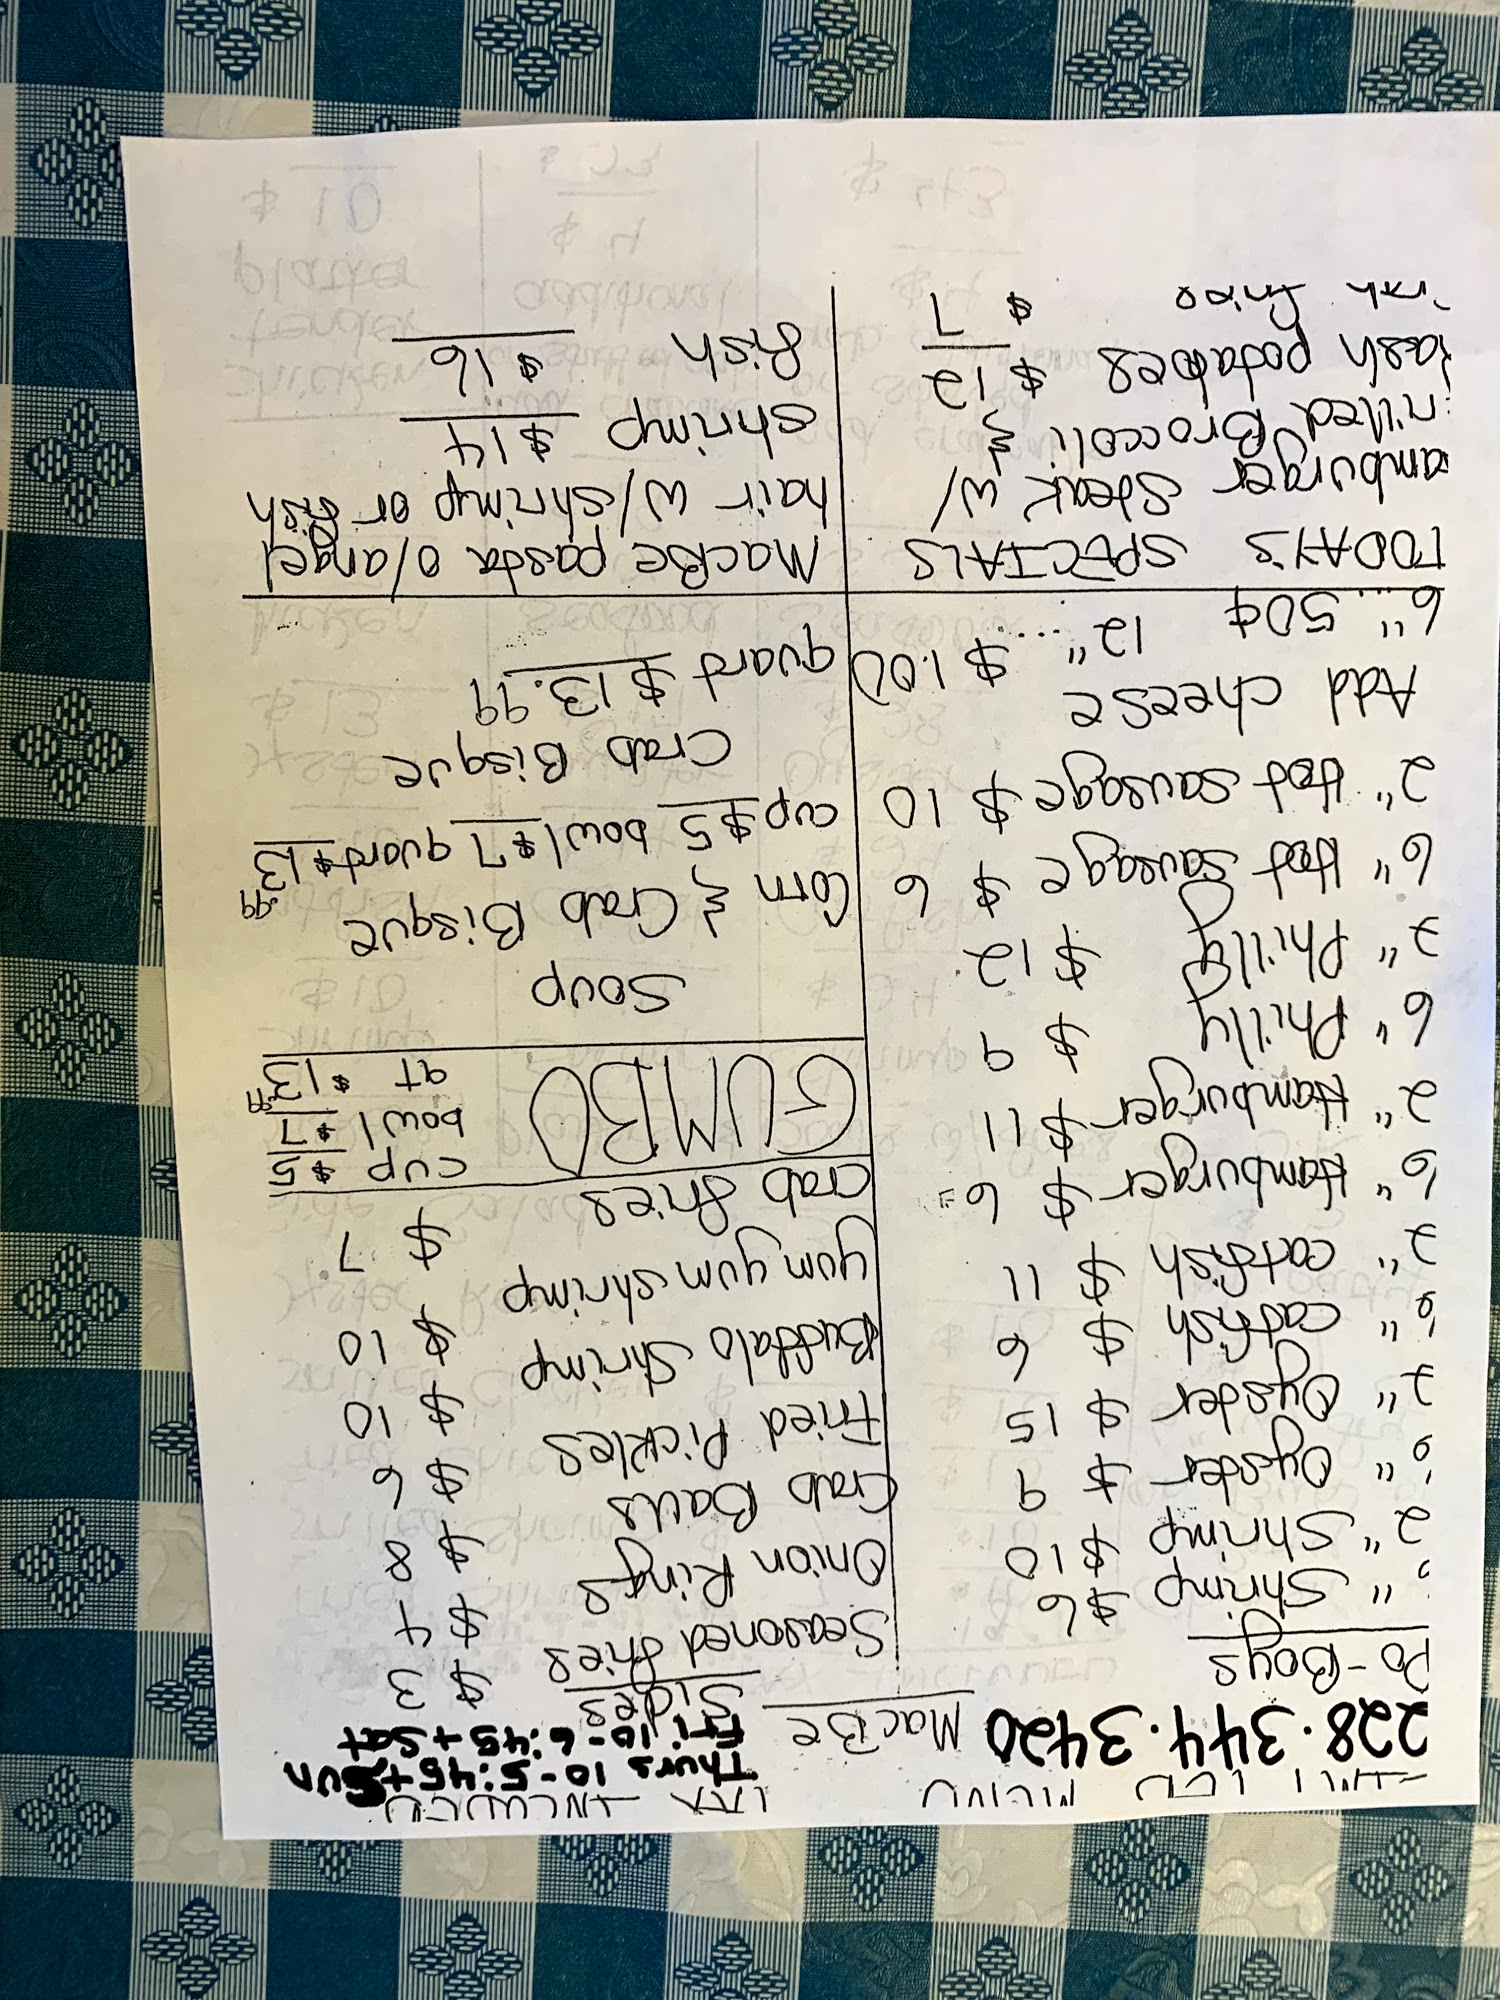 LIMITED MENU TAX INCLUDED
228.344.3420 MacBe
Thurs 10-5:45+Sun
Fri 10-6:45+Sat
Po-Boys
" Shrimp $6
2" Shrimp $10
6" Oyster $9
2" Oyster $15
6" catfish $6
2" catfish $11
6" Hamburger $6
2" Hamburger $11
6" Philly $9
2" Philly $12
6" Hot sausage $6
2" Hot sausage $10
Add cheese
6".... 50¢ 12" .... $1.00
TODAY'S SPECIALS
amburger Steak w/
rilled Broccoli &
ash potatoes $12
$7
Sides
Seasoned fries $3
Onion Rings $4
Crab Balls $8
Fried Pickles $6
Buffalo Shrimp $10
yum yum shrimp $10
crab fries $7
GUMBO
cup $5
bowl $7
qt $13.99
Soup
Corn & Crab Bisque
cup $5 bowl $7 quart $13.99
Crab Bisque
quart $13.99
MacBe pasta o/angel
hair w/shrimp or fish
shrimp $14
fish $16